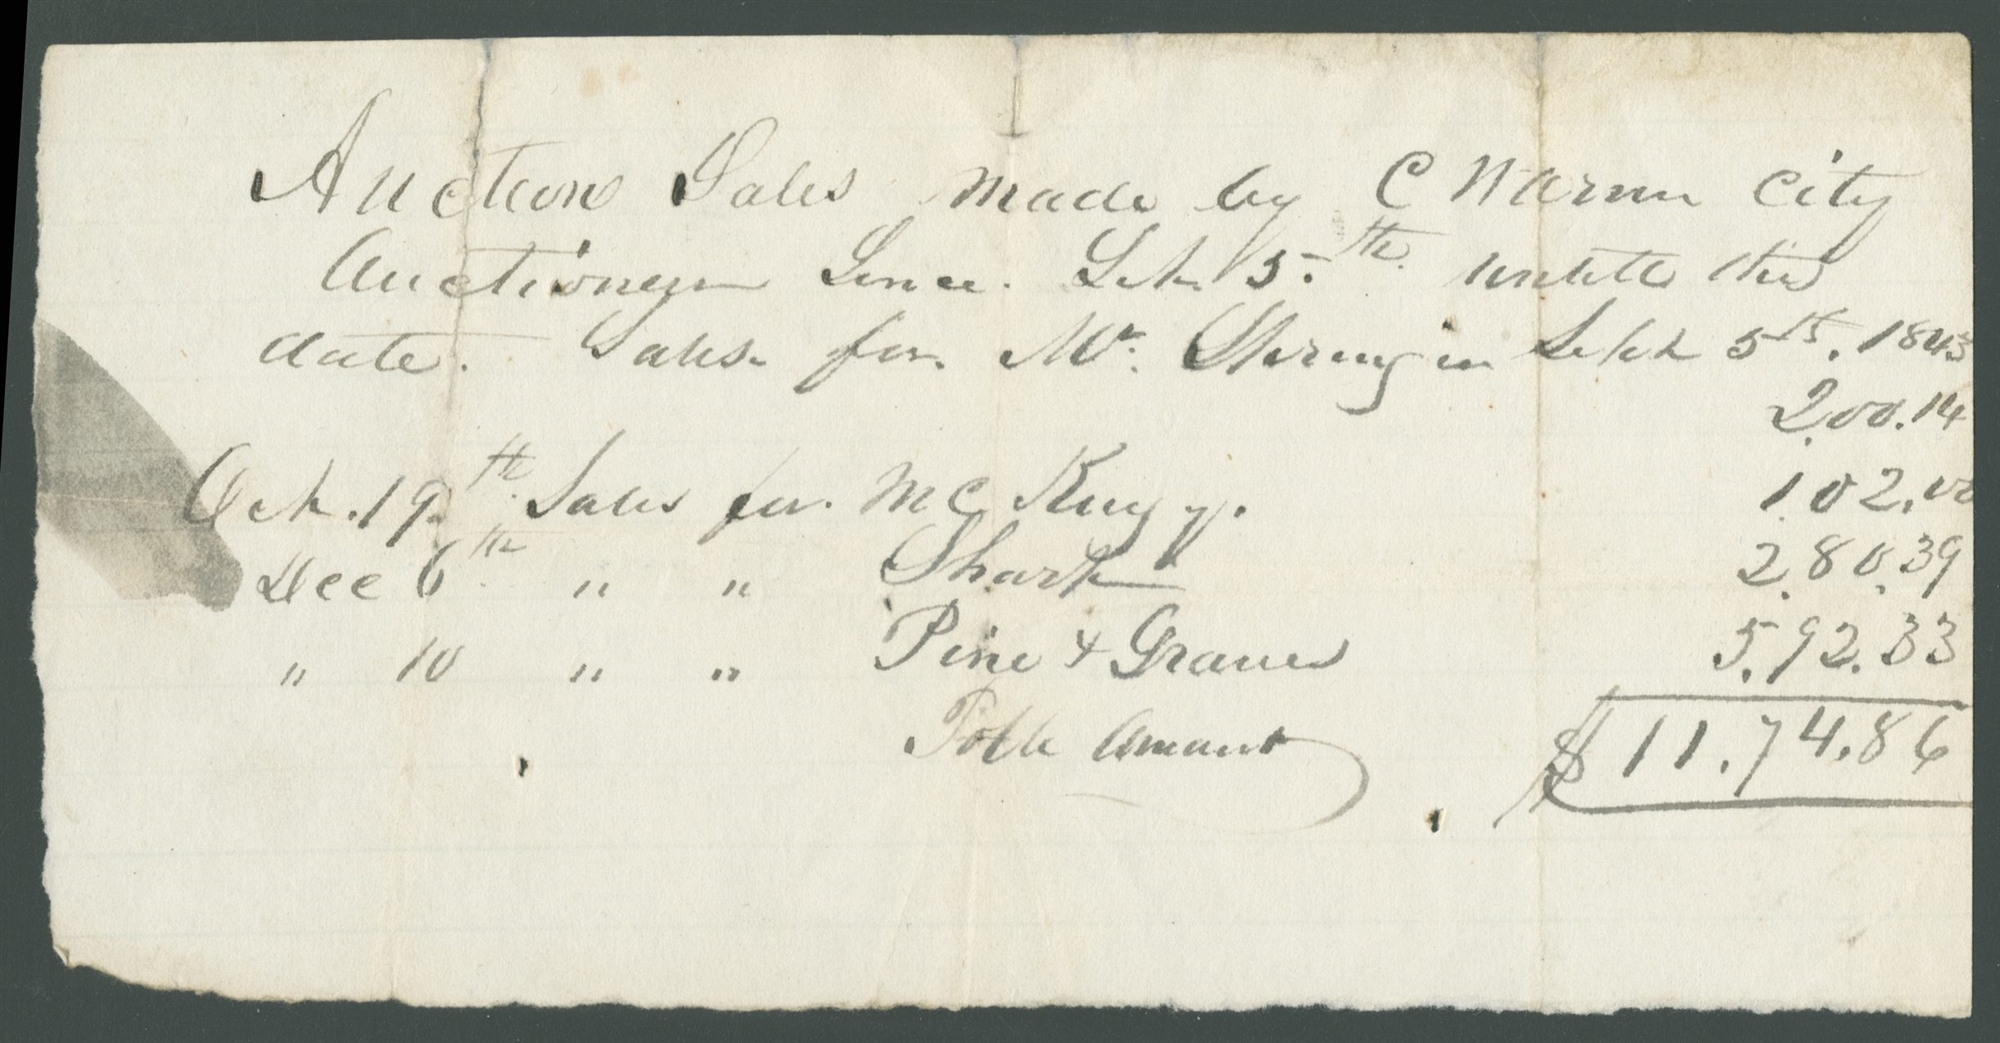 Auction Sales made by C Warnn City
Auctioneyer Sence. Sept 5.th untill this
date. Sales for Mr. Springer Sept 5th. 1843
2,00.14
Oct. 19th Sales for. Mc Kuyy. 102.00
Dec 6th " " Shark 2,80,39
" 10 " " Pine & Graves 5,92.33
Totle Amount $11,74.86